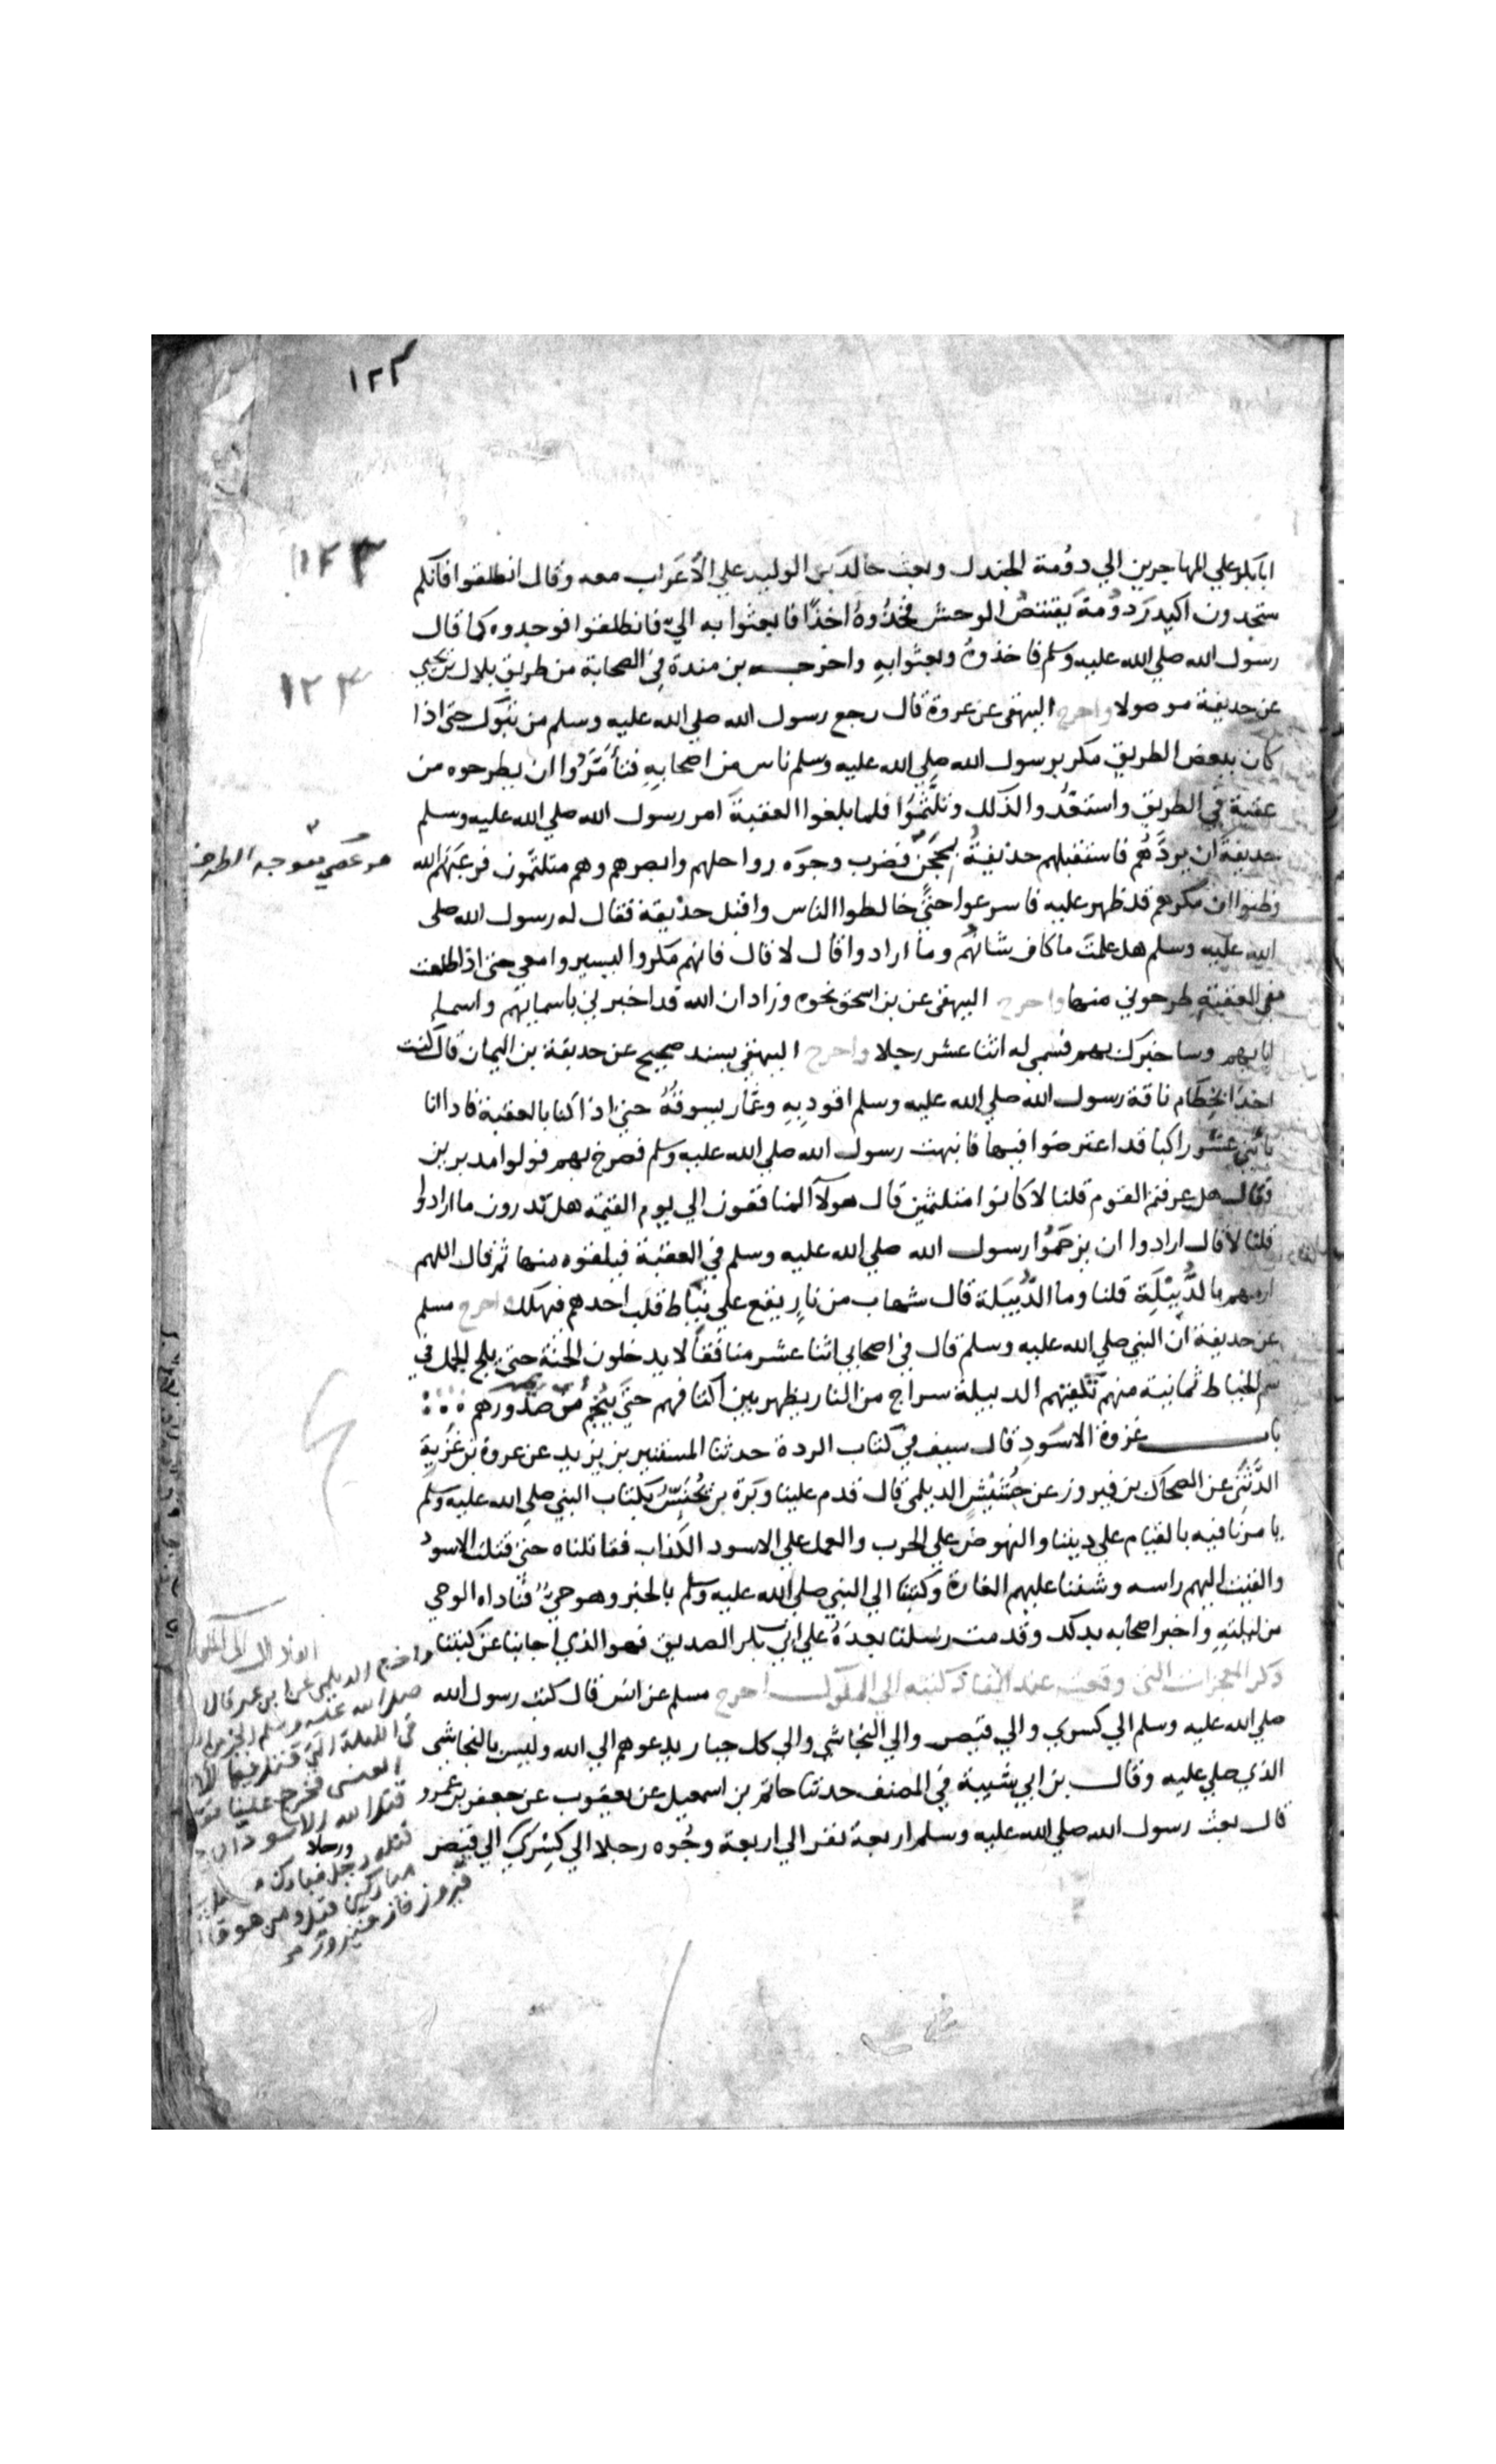 ١٢٣
١٢٣
١٢٣
ابابكر علي المهاجرين الي دومة الجندل وبعث خالد بن الوليد علي الأعراب معه وقال انطلقوا فانكم
ستجدون اكيدر دومة يقتنص الوحش فخذوه اخذا فابعثوا به الي فانطلقوا فوجدوه كما قال
رسول الله صلي الله عليه وسلم فاخذوه وبعثوا به واخرج بن مندة في الصحابة من طريق بلال بن يحيي
عن حذيفة موصولا واخرج البيهقي عن عروة قال رجع رسول الله صلي الله عليه وسلم من تبوك حتي اذا
كان ببعض الطريق مكر برسول الله صلي الله عليه وسلم ناس من اصحابه فتأمروا ان يطرحوه من
عقبة في الطريق واستعدوا لذلك وتلثموا فلما بلغوا العقبة امر رسول الله صلي الله عليه وسلم
حذيفة ان يردهم فاستقبلهم حذيفة بمحجن فضرب وجوه رواحلهم وابصرهم وهم متلثمون فرعبهم الله
هو عصي معوجه الطرف
وظنوا ان مكرهم قد ظهر عليه فاسرعوا حتي خالطوا الناس واقبل حذيفة فقال له رسول الله صلي
الله عليه وسلم هل علمت ما كان شانهم وما ارادوا قال لا قال فانهم مكروا ليسيروا معي حتي اذا طلعت
في العقبة طرحوني منها واخرج البيهقي عن بن اسحق نحوه وزاد ان الله قد اخبرني باسمايهم واسماء
ابايهم وساخبرك بهم فسمي له اثنا عشر رجلا واخرج البيهقي بسند صحيح عن حذيفة بن اليمان قال كنت
اخذا بخطام ناقة رسول الله صلي الله عليه وسلم اقود به وعمار يسوقه حتي اذا كنا بالعقبة فاذا انا
باثني عشر راكبا قد اعترضوا فيها فانبهت رسول الله صلي الله عليه وسلم فصرخ بهم فولوا مدبرين
فقال هل عرفتم القوم قلنا لا كانوا متلثمين قال هولآ المنافقون الي يوم القيمة هل تدرون ما ارادوا
قلنا لا قال ارادوا ان يزحموا رسول الله صلي الله عليه وسلم في العقبة فيلقوه منها ثم قال اللهم
ارمهم بالدبيلة قلنا وما الدبيلة قال شهاب من نار يقع علي نياط قلب احدهم فيهلك واخرج مسلم
عن حذيفة ان النبي صلي الله عليه وسلم قال في اصحابي اثنا عشر منافقا لا يدخلون الجنة حتي يلج الجمل في
سم الخياط ثمانية منهم تكفيهم الدبيلة سراج من النار يظهر بين اكتافهم حتي ينجم من صدورهم
باب غزوة الاسود قال سيف في كتاب الردة حدثنا المستنير بن يزيد عن عروة بن غزية
الدثني عن الضحاك بن فيروز عن جشيش الديلمي قال قدم علينا وبرة بن يحنس بكتاب النبي صلي الله عليه وسلم
يامرنا فيه بالقيام علي ديننا والنهوض علي الحرب والعمل علي الاسود الكذاب فقاتلناه حتي قتلت الاسود
والقيت اليهم راسه وشننا عليهم الغارة وكتبنا الي النبي صلي الله عليه وسلم بالخبر وهو حي فاتاه الوحي
من ليلته واخبر اصحابه بذلك وقدمت رسلنا بعده علي ابي بكر الصديق فهو الذي اجابنا عن كتبنا
ذكر المعجزات التي وقعت عند انفاذ كتبه الي الملوك اخرج مسلم عن انس قال كتب رسول الله
صلي الله عليه وسلم الي كسري والي قيصر والي النجاشي والي كل جبار يدعوهم الي الله وليس بالنجاشي
الذي صلي عليه وقال بن ابي شيبة في المصنف حدثنا حاتم بن اسمعيل عن يعقوب عن جعفر بن عمرو
قال بعث رسول الله صلي الله عليه وسلم اربعة نفر الي اربعة وجوه رجلا الي كسري الي قيصر
واخرج الديلمي عن ابن عمر قال
صلي الله عليه وسلم الخبر من
في الليلة التي قتل فيها
العنسي فخرج علينا
قتل الله الاسود
قتله رجل مبارك
ورجلا
قيل ومن هو
فيروز فاز فيروز